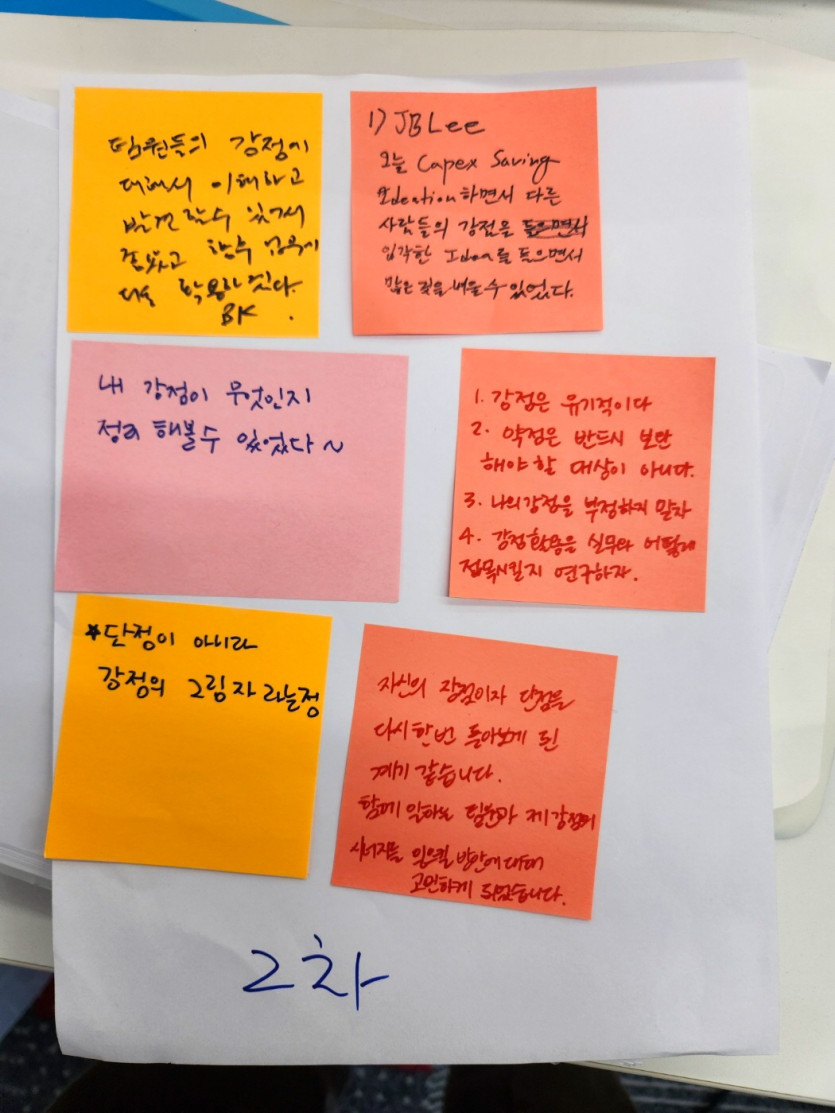 팀원들의 강점에
대해서 이해하고
발견 할수 있어서
좋았고 향후 업무에
더욱 활용하겠다.
BK
1) JB Lee
오늘 Capex Saving
Ideation 하면서 다른
사람들의 강점을 들으면서
입각한 Idea를 들으면서
많은 것을 배울 수 있었다.
내 강점이 무엇인지
정리 해볼수 있었다~
1. 강점은 유기적이다
2. 약점은 반드시 보완
해야 할 대상이 아니다.
3. 나의강점을 부정하지 말자
4. 강점활용을 실무와 어떻게
접목시킬지 연구하자.
*단점이 아니라
강점의 그림자 라는점
자신의 장점이자 단점을
다시 한번 돌아보게 된
계기 같습니다.
함께 일하는 팀원과 제 강점의
시너지를 일으킬 방안에 대해
고민하게 되었습니다.
2차